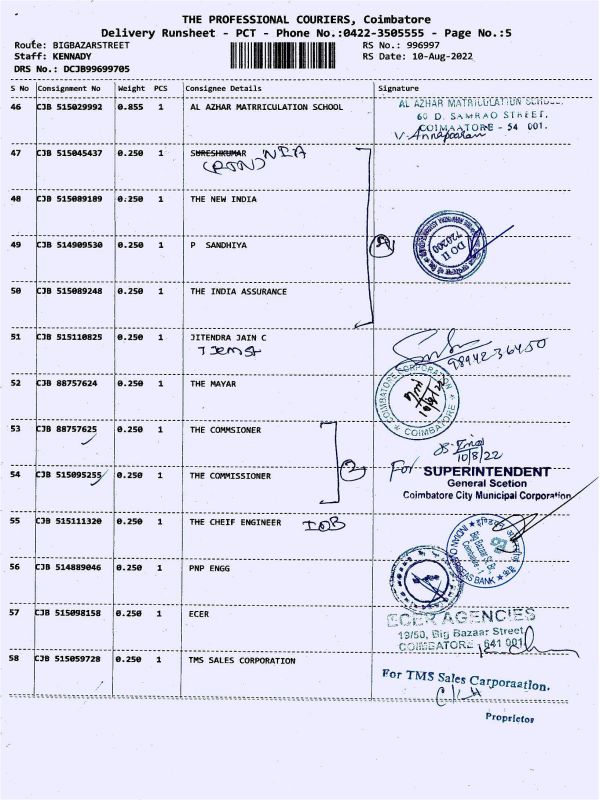 THE PROFESSIONAL COURIERS, Coimbatore
Delivery Runsheet - PCT - Phone No.:0422-3505555 - Page No.:5
Route: BIGBAZARSTREET RS No.: 996997
Staff: KENNADY RS Date: 10-Aug-2022
DRS No.: DCJB99699705
S No Consignment No Weight PCS Consignee Details Signature
46 CJB 515029992 0.855 1 AL AZHAR MATRRICULATION SCHOOL
AL AZHAR MATRICULATION SCHOOL,
60 D. SAMRAO STREET,
COIMAATORE - 54 001.
47 CJB 515045437 0.250 1 SURESHKUMAR NIA
48 CJB 515089189 0.250 1 THE NEW INDIA
49 CJB 514909530 0.250 1 P SANDHIYA
DO II
720200
50 CJB 515089248 0.250 1 THE INDIA ASSURANCE
51 CJB 515110825 0.250 1 JITENDRA JAIN C
9894236450
52 CJB 88757624 0.250 1 THE MAYAR
COIMBATORE CORPORATION
COIMBATORE
10/8/22
53 CJB 88757625 0.250 1 THE COMMSIONER
10/8/22
54 CJB 515095255 0.250 1 THE COMMISSIONER 2
For SUPERINTENDENT
General Scetion
Coimbatore City Municipal Corporation
55 CJB 515111320 0.250 1 THE CHEIF ENGINEER IOB
INDIAN OVERSEAS BANK
Big Bazaar St. Br.
Coimbatore - 1
56 CJB 514889046 0.250 1 PNP ENGG
57 CJB 515098158 0.250 1 ECER
ECER AGENCIES
19/50, Big Bazaar Street
COIMBATORE 641 001
58 CJB 515059728 0.250 1 TMS SALES CORPORATION
For TMS Sales Carporaation.
Proprietor